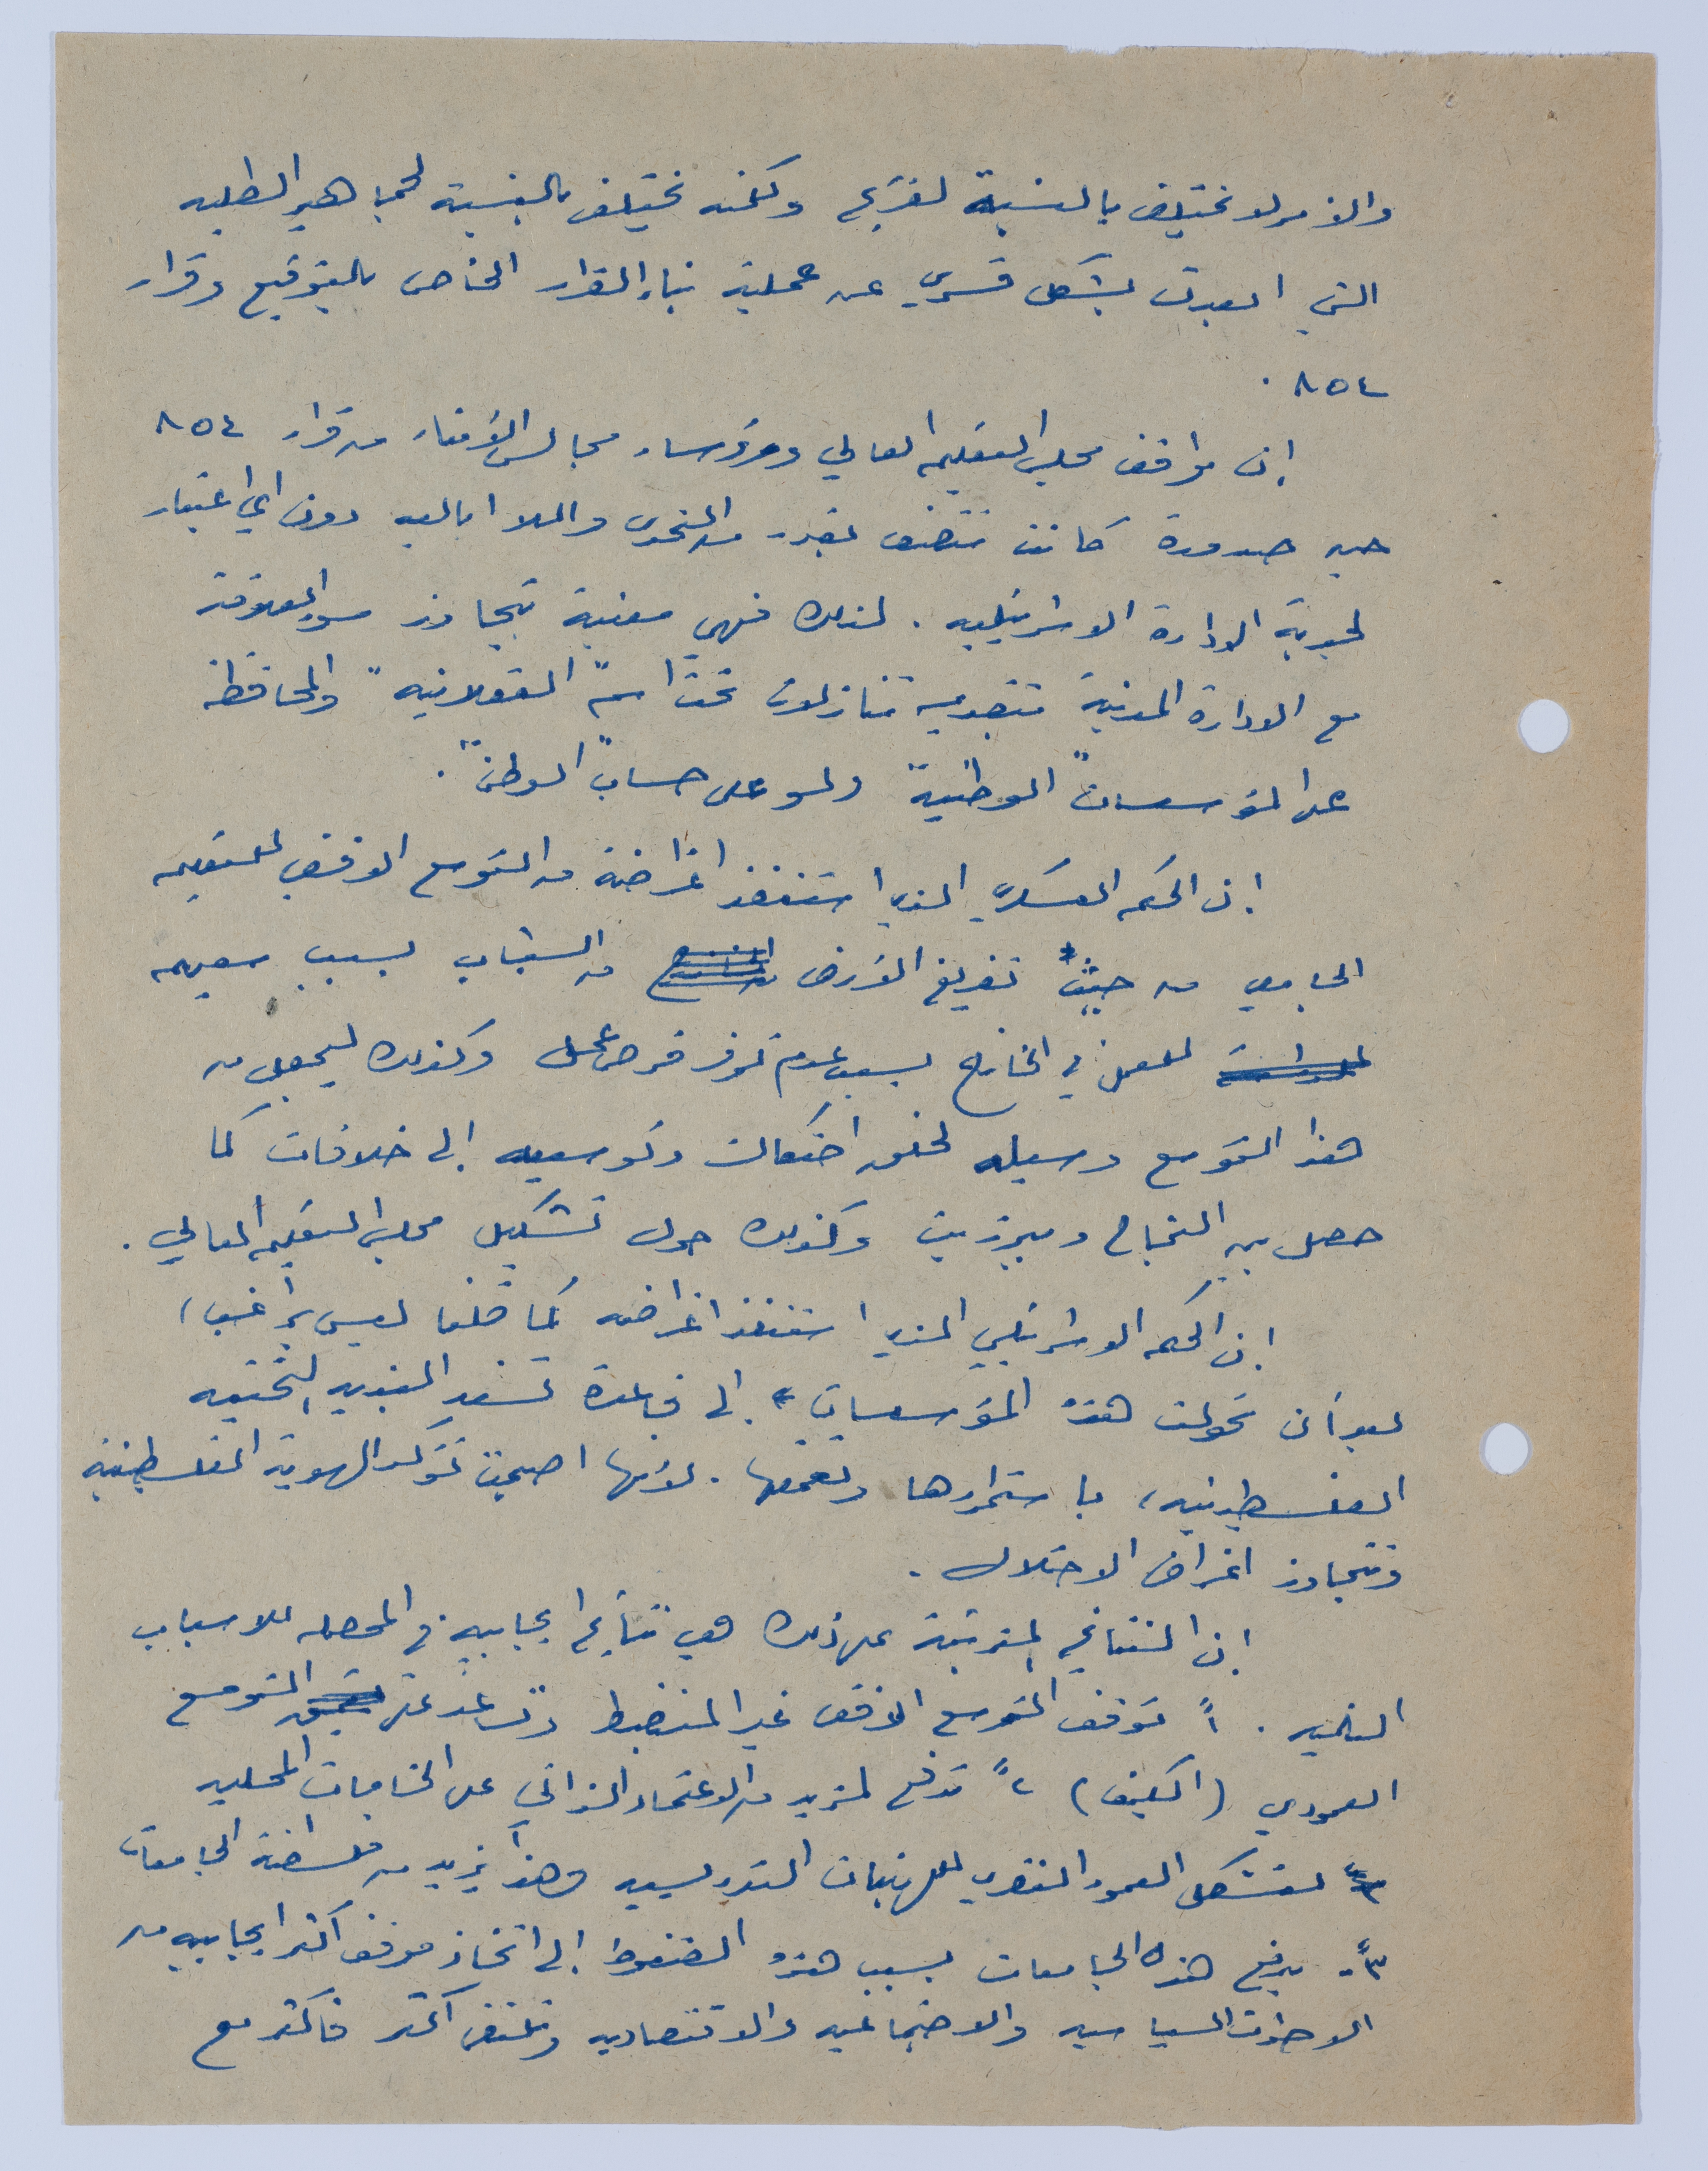 والأمر لا يختلف بالنسبة لغزة ولكنه يختلف بالنسبة لجماهير الطلبه
التي ابعدت بشكل قسري عن عملية بناء القرار الخاص بالتوقيع وقرار
٨٥٤ .
إن مواقف مجلس التعليم العالي ورؤساء مجالس الأمناء من قرار ٨٥٤
حين صدوره كانت تتصف بقدر من التحدي واللا ابالية دون اي اعتبار
لجدية الادارة الاسرائيليه . لذلك فهي معنية بتجاوز سوء العلاقة
مع الادارة المدنية بتقديم تنازلات تحت اسم "العقلانيه" والمحافظة
على المؤسسات "الوطنية" ولو على حساب "الوطن" .
إن الحكم العسكري الذي استنفذ اغراضه من التوسع الافقي للتعليم
الجامعي من حيث تفريغ الأرض من الشباب بسبب سعيهم
للعمل في الخارج بسبب عدم توفر فرص عمل وكذلك ليجعل من
هذا التوسع وسيله لخلق احتكاك وتوسيعه إلى خلافات كما
حصل بين النجاح وبيرزيت وكذلك حول تشكيل مجلس التعليم العالي .
إن الحكم الاسرائيلي الذي استنفذ اغراضه كما قلنا ليس براغب ،
بعد أن تحولت هذه المؤسسات إلى قاعدة تسند البنية التحتيه
الفلسطينيه ، باستمرارها وتعمقها . لأنها اصبحت تؤكد الهوية الفلسطينية
وتتجاوز اغراض الاحتلال .
إن النتائج المترتبة على ذلك هي نتائج ايجابيه في المحصله للاسباب
التاليه . ١ً توقف التوسع الافقي غير المنضبط وتساعد على التوسع
العمودي (الكيف) ٢ً تدفع لمزيد من الاعتماد الذاتي على الخامات المحليه
لتشكل العمود الفقري للهيئات التدريسيه وهذا يزيد من فلسطنة الجامعات
٣ً- يدفع هذه الجامعات بسبب هذه الضغوط إلى اتخاذ موقف اكثر ايجابيه من
الاطراف السياسيه والاجتماعيه والاقتصاديه وتلتقي اكثر فاكثر مع